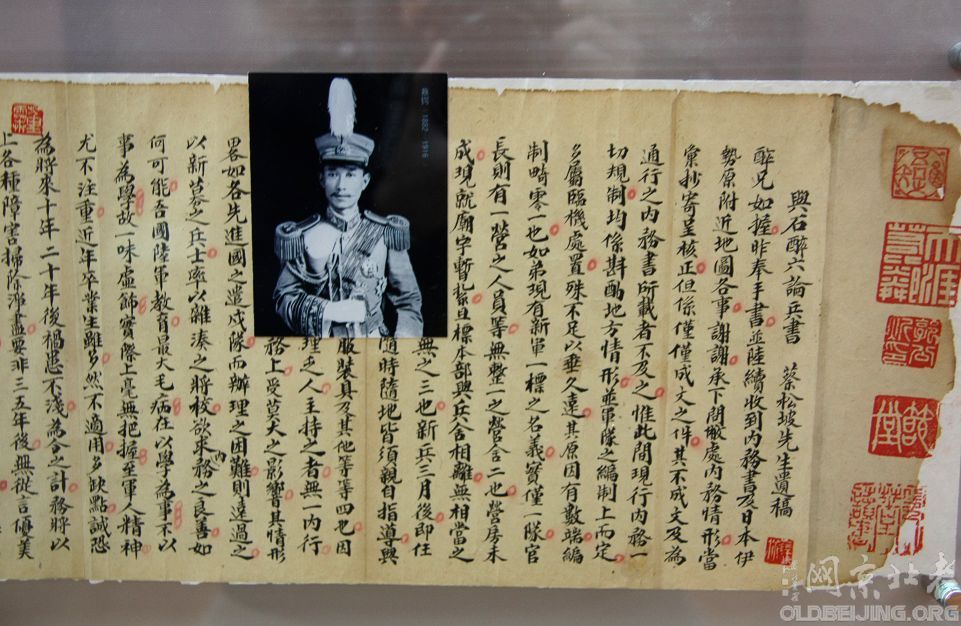 與石醉六論兵書 蔡松坡先生遺稿
醉兄如握昨奉手書並陸續收到內務書及日本伊
勢原附近地圖各事謝謝承下問敝處內務情形當
彙抄寄呈核正但係僅僅成文之件其不成文及為
通行之內務書所載者不及之惟此間現行內務一
切規制均係斟酌地方情形並軍隊之編制上而定
多屬臨機處置殊不足以垂久遠其原因有數端編
制畸零一也如弟現有新軍一標之名義實僅一隊官
長則有一營之人員等無整一之營舍二也營房未
成現就廟宇暫紮且標本部與兵舍相離無相當之
無之三也新兵三月後即任
隨時隨地皆須親自指導與
服裝具及其他等等四也因
理乏人主持之者無一內行
務上受莫大之影響其情形
畧如各先進國之遣戍隊而辦理之困難則遠過之
以新募之兵士率以雜湊之將校欲求內務之良善如
何可能吾國陸軍教育最大毛病在以學為事不以
事為學故一味虛飾實際上毫無把握至軍人精神
尤不注重近年卒業生雖多然不適用多缺點誠恐
為將來十年二十年後禍患不淺為今之計務將以
上各種障害掃除淨盡要非三五年後無從言優美
蔡鍔（1882-1916）
老北京網
OLDBEIJING.ORG